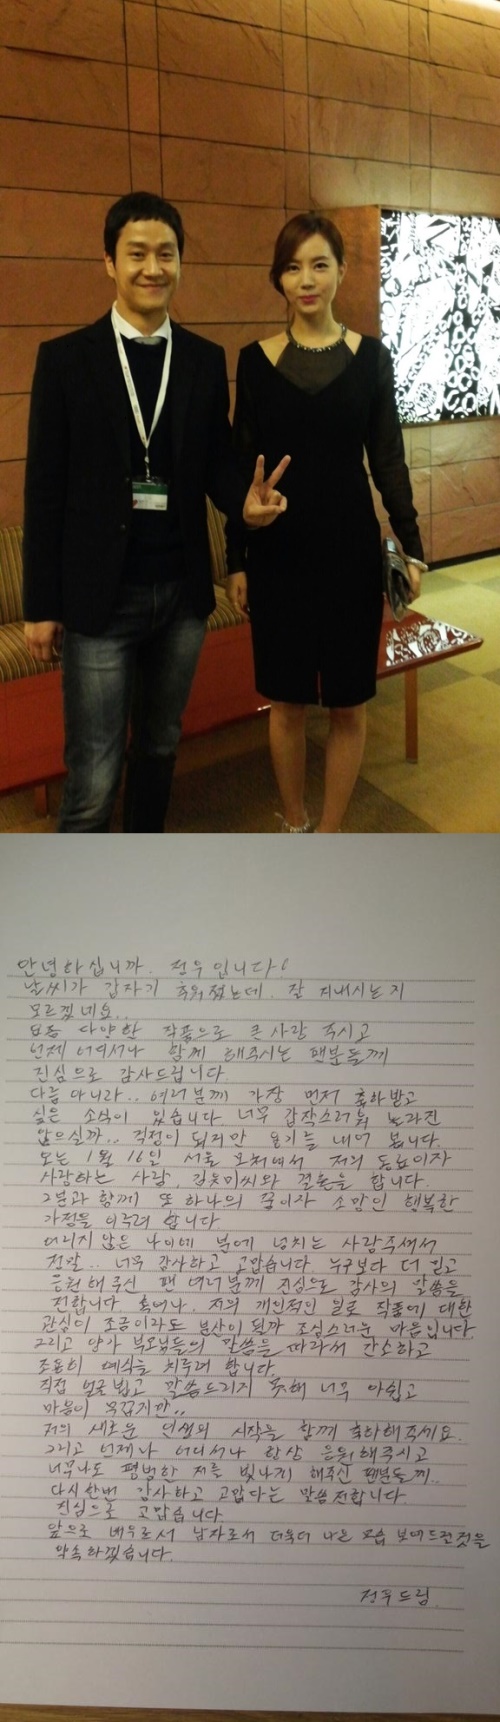 안녕하십니까. 정우입니다!
날씨가 갑자기 추워졌는데. 잘 지내시는지
모르겠네요..
요즘 다양한 작품으로 큰 사랑 주시고
언제 어디서나 함께 해주시는 팬분들께
진심으로 감사드립니다.
다름 아니라.. 여러분께 가장 먼저 축하받고
싶은 소식이 있습니다 너무 갑작스러워 놀라진
않으실까.. 걱정이 되지만 용기를 내어 봅니다.
오는 1월 16일 서울 모처에서 저의 동료이자
사랑하는 사람, 김유미씨와 결혼을 합니다.
그분과 함께 또 하나의 꿈이자 소망인 행복한
가정을 이루려 합니다
어리지 않은 나이에 분에 넘치는 사람주셔서
정말.. 너무 감사하고 고맙습니다. 누구보다 더 믿고
응원해 주신 팬 여러분께 진심으로 감사의 말씀을
전합니다 혹여나, 저의 개인적인 일로 작품에 대한
관심이 조금이라도 분산이 될까 조심스러운 마음입니다
그리고 양가 부모님들의 말씀을 따라서 간소하고
조용히 예식을 치루려 합니다.
직접 얼굴 뵙고 말씀드리지 못해 너무 아쉽고
마음이 무겁지만..
저의 새로운 인생의 시작을 함께 축하해주세요.
그리고 언제나 어디서나 항상 응원해주시고
너무나도 평범한 저를 빛나게 해주신 팬분들께..
다시한번 감사하고 고맙다는 말씀 전합니다.
진심으로 고맙습니다.
앞으로 배우로서 남자로서 더욱더 나은 모습 보여드릴것을
약속하겠습니다.
정우드림.